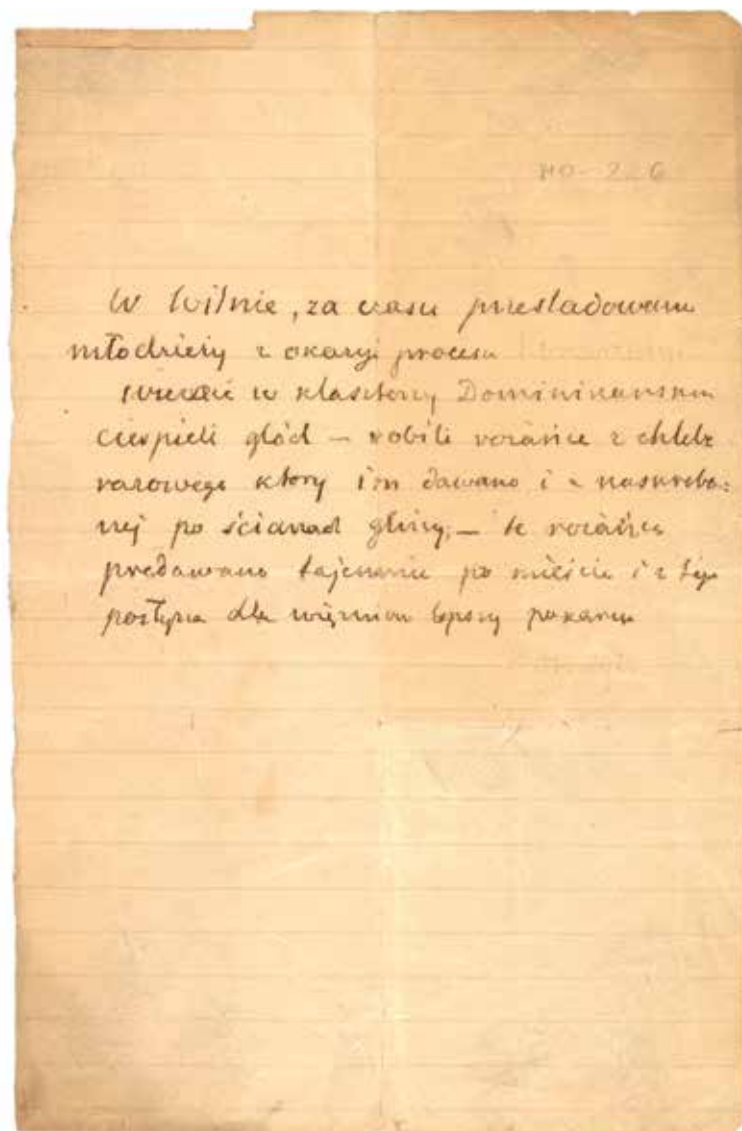 NO-226
W Wilnie, za czasu prześladowania
młodzieży z okazyi procesu
więznie w klasztorze Dominikańskim
cierpieli głód – robili rożańce z chleba
razowego ktory im dawano i z naskroba:
nej po ścianach gliny, – te rożańce
predawano tajemnie po mieście i z tego
postępu dla więzniow lepszy pokarm